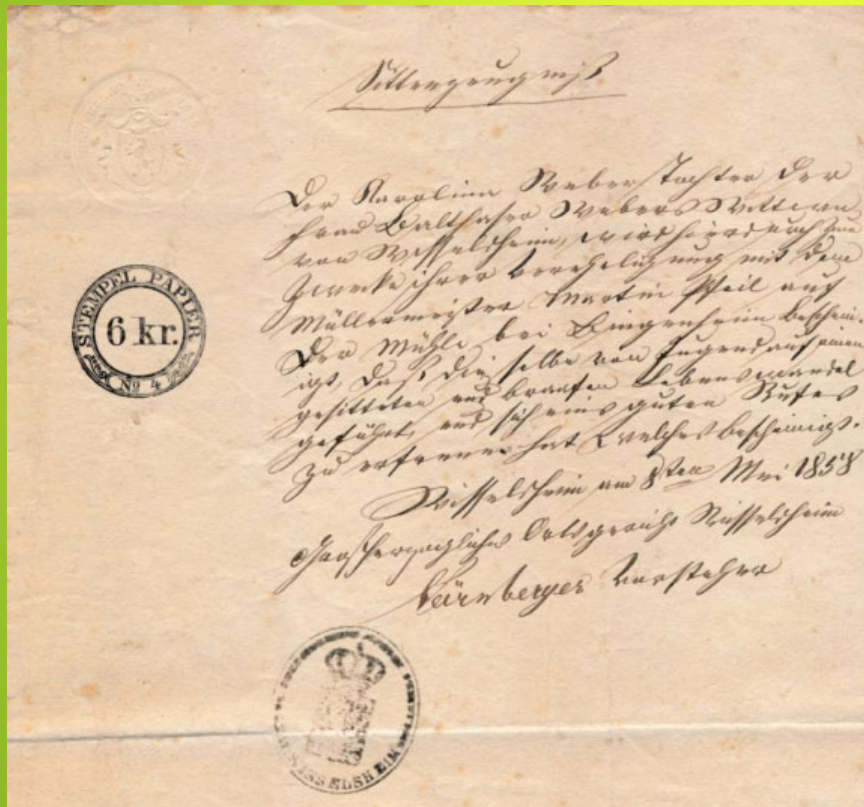 Sittenzeugniß
Der Karolina Weber Tochter der
Frau Balthaser Webers Wittwe
von Wisselsheim, wird hierdurch zum
Zwecke ihrer Vereheligung mit dem
Müllermeister Martin Pfeil auf
Der Mühle bei Bingenheim beschein-
igt, daß dieselbe von Jugend auf einen
gesitteten und braafen Lebenswandel
geführt, und sich eins guten Rufes
zu erfreuen hat welches bescheinigt.
Wisselsheim am 8ten Mai 1858
Großherzogliches Ortsgericht Wisselsheim
Vorsteher
STEMPEL PAPIER
6 kr.
No 4
WISSELSHEIM